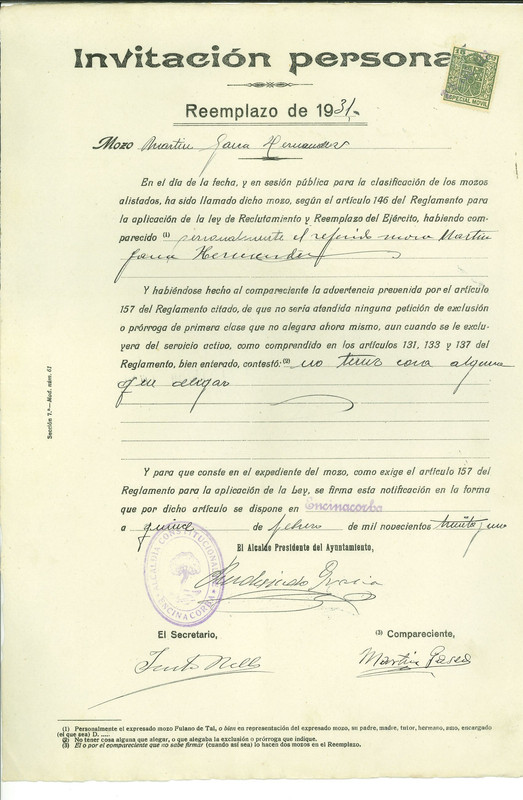 Invitación persona
ESPECIAL MOVIL
Reemplazo de 1931,-
Mozo Martin Garcia Hernandez
En el día de la fecha, y en sesión pública para la clasificación de los mozos
alistados, ha sido llamado dicho mozo, según el artículo 146 del Reglamento para
la aplicación de la ley de Reclutamiento y Reemplazo del Ejército, habiendo com-
parecido (1) personalmente el referido mozo Martin
Garcia Hernandez
Y habiéndose hecho al compareciente la advertencia prevenida por el artículo
157 del Reglamento citado, de que no sería atendida ninguna petición de exclusión
o prórroga de primera clase que no alegara ahora mismo, aun cuando se le exclu-
yera del servicio activo, como comprendido en los artículos 131, 133 y 137 del
Reglamento, bien enterado, contestó: (2) no tener cosa alguna
que alegar
Sección 7.ª—Mod. núm. 61
Y para que conste en el expediente del mozo, como exige el artículo 157 del
Reglamento para la aplicación de la Ley, se firma esta notificación en la forma
que por dicho artículo se dispone en Encinacorba
a quince de febrero de mil novecientos treinta y uno
El Alcalde Presidente del Ayuntamiento,
ALCALDIA CONSTITUCIONAL
ENCINACORBA
El Secretario,
(3) Compareciente,
Martin Garcia
(1) Personalmente el expresado mozo Fulano de Tal, o bien en representación del expresado mozo, su padre, madre, tutor, hermano, amo, encargado
(el que sea) D. .....
(2) No tener cosa alguna que alegar, o que alegaba la exclusión o prórroga que indique.
(3) El o por el compareciente que no sabe firmar (cuando así sea) lo hacen dos mozos en el Reemplazo.